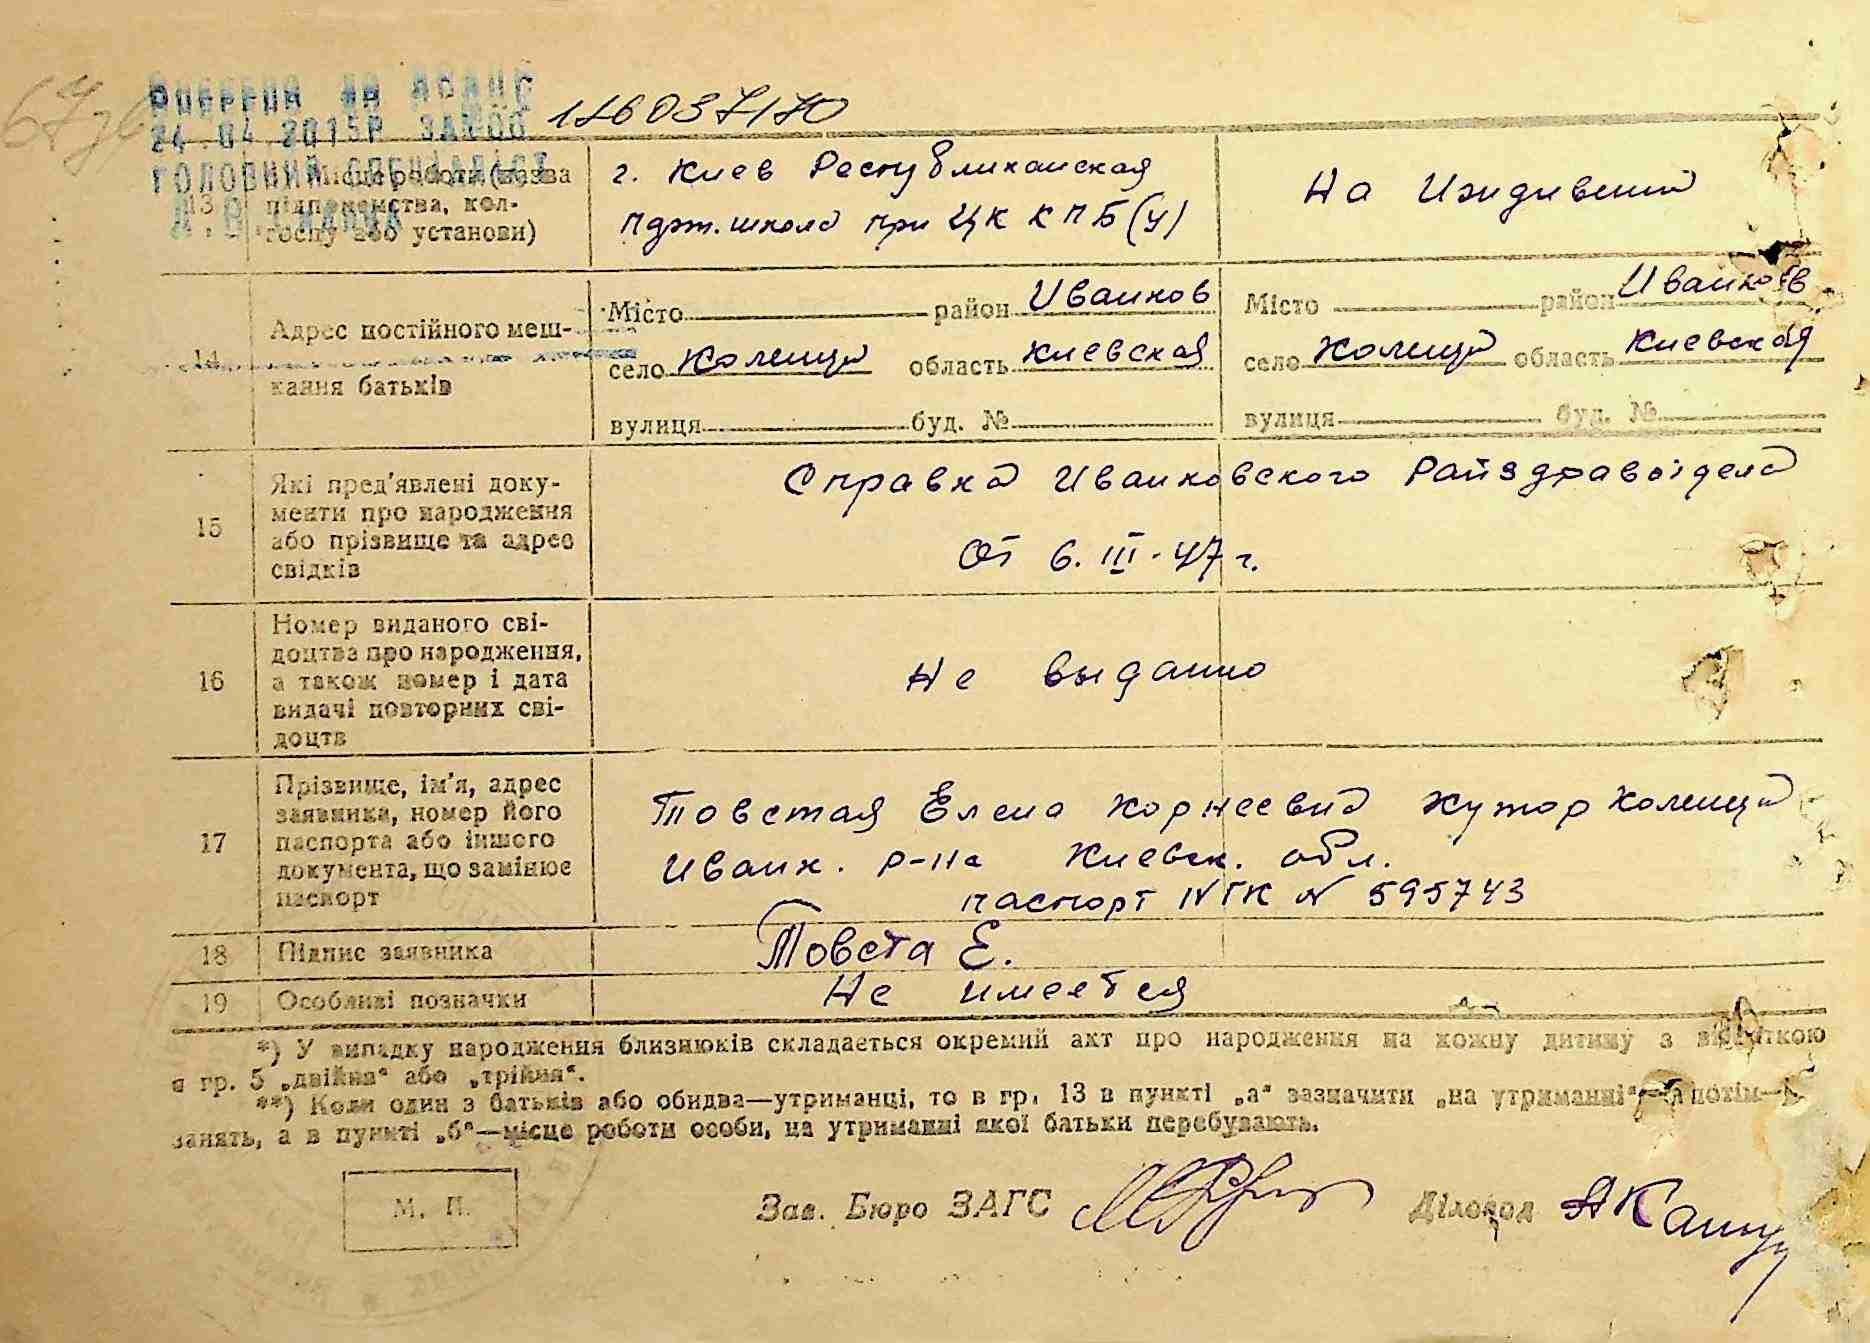 126037170
24.04.2015р
13 Місце роботи (назва підприємства, колгоспу або установи)
г. Киев Республиканская
парт. школа при ЦК КПБ(У)
На Иждивении
14 Адрес постійного меш-
кання батьків
Місто район Иванков
село Коленци область Киевская
вулиця буд. №
Місто район Иванков
село Коленци область Киевская
вулиця буд. №
15 Які пред'явлені доку-
менти про народження
або прізвище та адрес
свідків
Справка Иванковского Райздравотдела
От 6.III-47 г.
16 Номер виданого сві-
доцтва про народження,
а також номер і дата
видачі повторних сві-
доцтв
Не выданно
17 Прізвище, ім'я, адрес
заявника, номер його
паспорта або іншого
документа, що замінює
паспорт
Товстая Елена Корнеевна хутор Коленци
Иванк. р-на Киевск. обл.
паспорт № 595743
18 Підпис заявника
Товста Е.
19 Особливі позначки
Не имеется
*) У випадку народження близнюків складається окремий акт про народження на кожну дитину з відміткою
в гр. 5 „двійня“ або „трійня“.
**) Коли один з батьків або обидва—утриманці, то в гр. 13 в пункті „а“ зазначити „на утриманні“, а потім—
занять, а в пункті „б“—місце роботи особи, на утриманні якої батьки перебувають.
М. П.
Зав. Бюро ЗАГС
Діловод